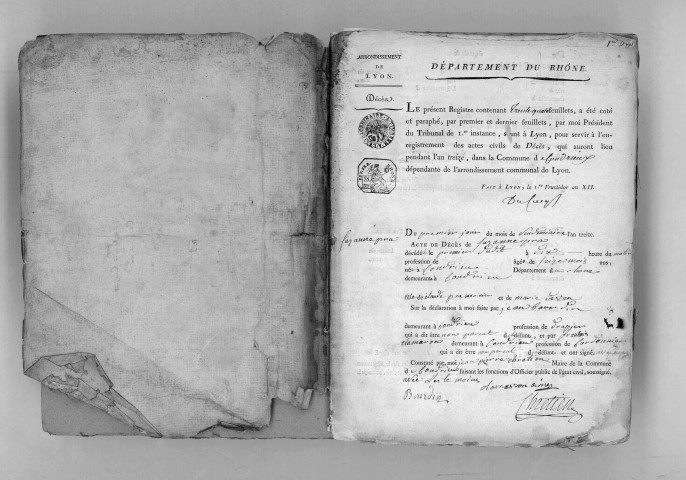 1er
ARRONDISSEMENT
DE
LYON.
DÉPARTEMENT DU RHÔNE.
Décès.
LE présent Registre contenant feuillets, a été coté
et paraphé, par premier et dernier feuillets, par moi Président
du Tribunal de 1.re instance, séant à Lyon, pour servir à l'en-
registrement des actes civils de Décès, qui auront lieu
pendant l'an treize, dans la Commune de Condrieux
dépendante de l'arrondissement communal de Lyon.
FAIT à LYON, le 1.er Fructidor an XII.
DU premier jour du mois de Vendemiaire l'an treize.
Suzanne
ACTE DE DÉCÈS de Suzanne
décédée le premier à heure du matin
profession de âgée de mois ans
née à Condrieu Département du rhone
demeurant à Condrieu
fille de claude et de marie
Sur la déclaration à moi faite par jean Bourdin
demeurant à Condrieu profession de
qui a dit être non parent du défunt, et par
clamaron demeurant à Condrieu profession de Cordonnier
qui a dit être du défunt et ont signé
Constaté par moi jean pierre chretien Maire de la Commune
de Condrieu faisant les fonctions d'Officier public de l'état civil, soussigné,
avec les témoins
Bourdin
Chrétien